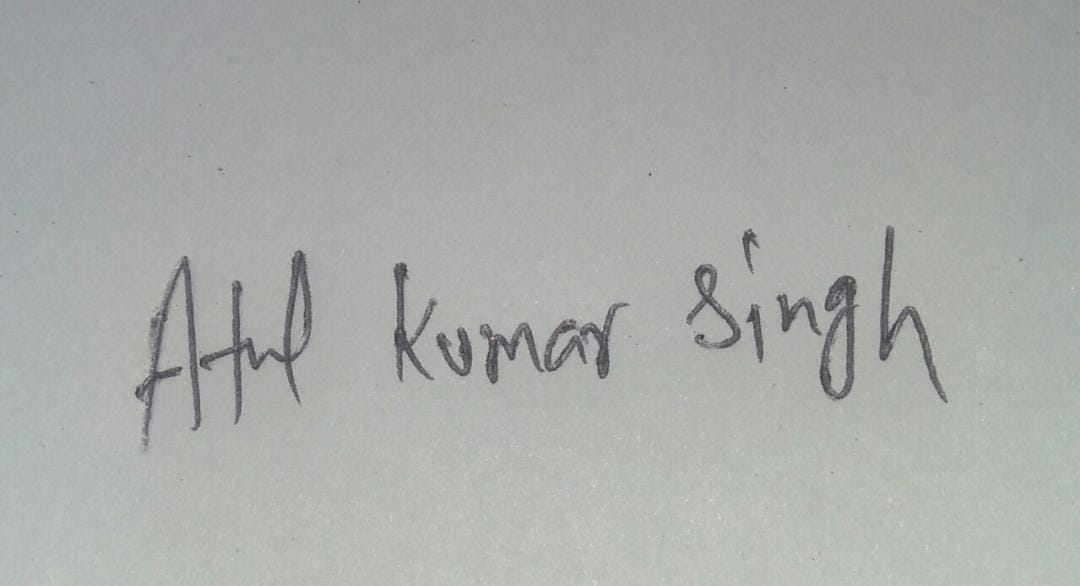 Atul Kumar Singh